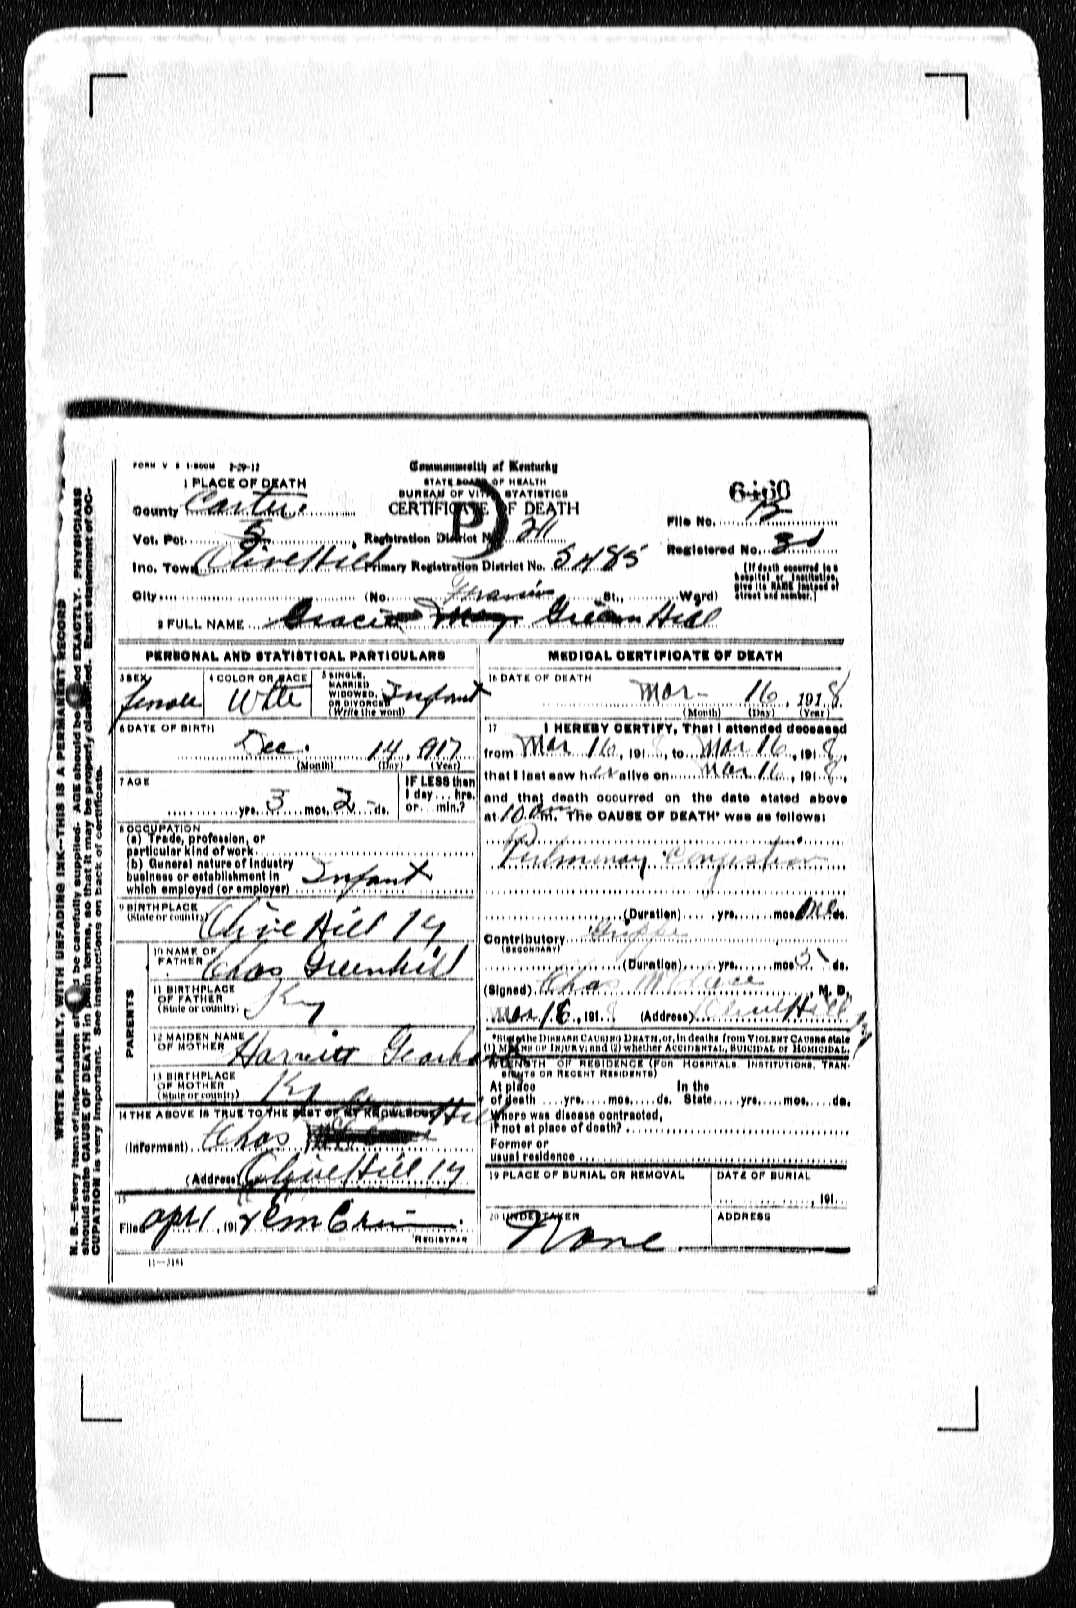 FORM V S 1-500M 2-29-12
Commonwealth of Kentucky
1 PLACE OF DEATH
STATE BOARD OF HEALTH
BUREAU OF VITAL STATISTICS
County Carter
CERTIFICATE OF DEATH
6460
File No.
Vot. Pct. 5 Registration District No.
Registered No.
Inc. Town Olive Hill Primary Registration District No. 5485
(If death occurred in a hospital or institution, give its NAME instead of street and number.)
City (No. St., Ward)
2 FULL NAME Gracie May Green Hill
PERSONAL AND STATISTICAL PARTICULARS
3 SEX female
4 COLOR OR RACE Wte
5 SINGLE, MARRIED WIDOWED, OR DIVORCED (Write the word) Infant
6 DATE OF BIRTH
Dec. 14, 917
(Month) (Day) (Year)
7 AGE
yrs. 3 mos. 2 ds.
IF LESS than 1 day... hrs. or... min.?
8 OCCUPATION
(a) Trade, profession, or
particular kind of work
(b) General nature of industry
business or establishment in
which employed (or employer) Infant
9 BIRTHPLACE
(State or country) Olive Hill Ky
PARENTS
10 NAME OF FATHER Chas Greenhill
11 BIRTHPLACE OF FATHER (State or country) Ky
12 MAIDEN NAME OF MOTHER Harriett Gearhart
13 BIRTHPLACE OF MOTHER (State or country) Ky
14 THE ABOVE IS TRUE TO THE BEST OF MY KNOWLEDGE
(Informant) Chas Green Hill
(Address) Olive Hill Ky
15
Filed Apr 1, 191
REGISTRAR
11—3184
MEDICAL CERTIFICATE OF DEATH
16 DATE OF DEATH
Mar- 16, 1918
(Month) (Day) (Year)
17 I HEREBY CERTIFY, That I attended deceased
from Mar 16, 1918, to Mar 16, 1918,
that I last saw her alive on Mar 16, 1918,
and that death occurred on the date stated above
at 10 am. The CAUSE OF DEATH* was as follows:
Pulmonary Congestion
(Duration) yrs. mos. one ds.
Contributory Grippe
(SECONDARY)
(Duration) yrs. mos. 5 ds.
(Signed) Chas M. D.
Mar 16, 1918 (Address) Olive Hill Ky
*State the DISEASE CAUSING DEATH, or, in deaths from VIOLENT CAUSES state
(1) MEANS OF INJURY; and (2) whether ACCIDENTAL, SUICIDAL or HOMICIDAL.
18 LENGTH OF RESIDENCE (FOR HOSPITALS, INSTITUTIONS, TRANSIENTS OR RECENT RESIDENTS)
At place In the
of death yrs. mos. ds. State yrs. mos. ds.
Where was disease contracted,
if not at place of death?
Former or
usual residence
19 PLACE OF BURIAL OR REMOVAL
DATE OF BURIAL
, 191
20 UNDERTAKER
None
ADDRESS
WRITE PLAINLY, WITH UNFADING INK—THIS IS A PERMANENT RECORD
N. B.—Every item of information should be carefully supplied. AGE should be stated EXACTLY. PHYSICIANS
should state CAUSE OF DEATH in plain terms, so that it may be properly classified. Exact statement of OC-
CUPATION is very important. See instructions on back of certificate.